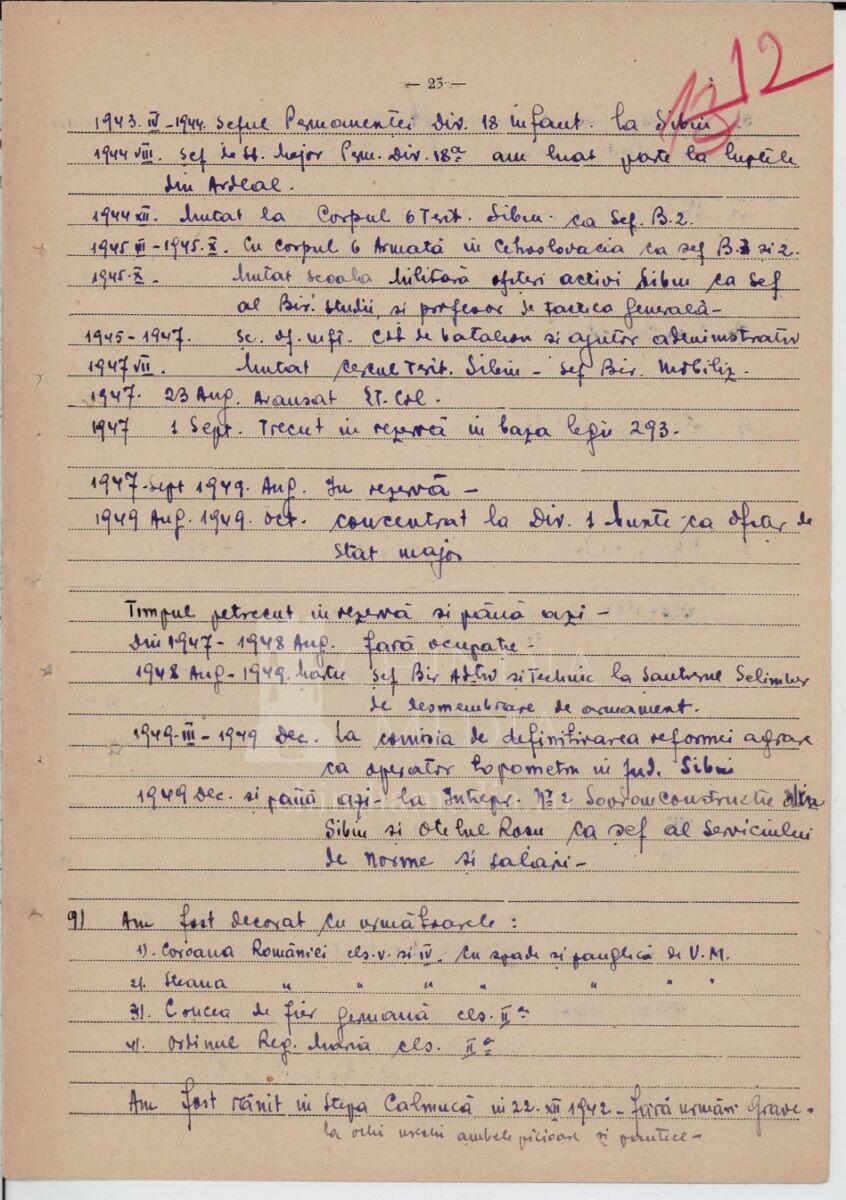 — 23 —
12
13
1943. IV - 1944. Șeful Permanenței Div. 18 infant. la Sibiu.
1944 VIII. Șef de St. Major Perm. Div. 18ª am luat parte la luptele
din Ardeal.
1944 XII. Mutat la Corpul 6 Terit. Sibiu ca Șef. B. 2.
1945 III - 1945. X. Cu Corpul 6 Armată în Cehoslovacia ca șef B. 3 și 2.
1945. X. Mutat Școala Militară ofițeri activi Sibiu ca Șef
al Bir. Studii, și profesor de Tactica generală -
1945 - 1947. Sc. of. inft. Cdt de batalion și ajutor administrativ
1947 VII. Mutat Cercul Terit. Sibiu - Șef Bir. Mobiliz.
1947. 23 Aug. Avansat Lt. Col.
1947 1 Sept. Trecut în rezervă în baza legii 293.
1947. Sept 1949. Aug. În rezervă -
1949 Aug. 1949. Oct. concentrat la Div. 1 Munte ca ofițer de
Stat major
Timpul petrecut în rezervă și până azi -
Din 1947 - 1948 Aug. fără ocupație -
1948 Aug - 1949. Martie Șef Bir Adtiv și Technic la Santierul Selimber
de desmembrare de armament.
1949 - III - 1949 Dec. La comisia de definitivarea reformei agrare
ca operator topometru în Jud. Sibiu
1949 Dec. și până azi - la Întrepr. Nº 2 Sovromconstrucție din
Sibiu și Oțelul Roșu ca șef al Serviciului
de Norme și salarii -
9) Am fost decorat cu următoarele :
1). Coroana României cls. V. și IV. cu spade și panglică de V.M.
2). Steaua " " " " " " "
3). Crucea de fier germană cls. IIª
4). Ordinul Reg. Maria cls. IIª
Am fost rănit în Stepa Calmucă în 22. XII 1942 - fără urmări Grave.
la ochi urechi ambele picioare și pântece -